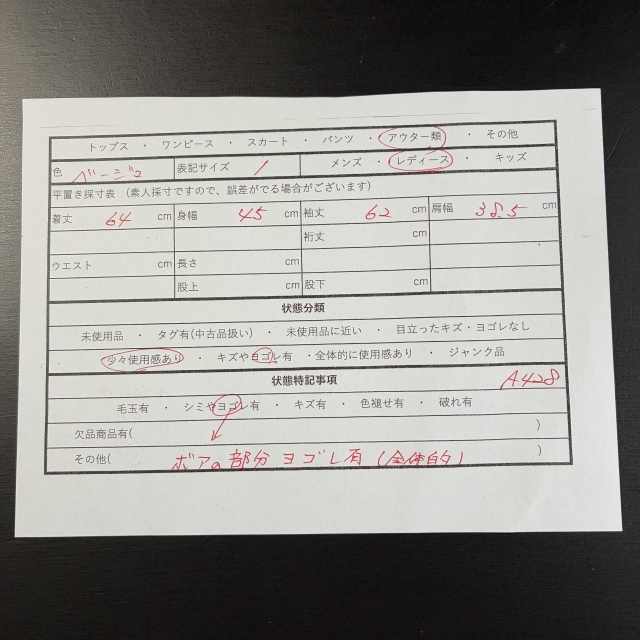 トップス ・ ワンピース ・ スカート ・ パンツ ・ アウター類 ・ その他
色 ベージュ 表記サイズ / メンズ ・ レディース ・ キッズ
平置き採寸表 (素人採寸ですので、誤差がでる場合がございます)
着丈 64 cm 身幅 45 cm 袖丈 62 cm 肩幅 38.5 cm
裄丈 cm
ウエスト cm 長さ cm
股上 cm 股下 cm
状態分類
未使用品 ・ タグ有(中古品扱い) ・ 未使用品に近い ・ 目立ったキズ・ヨゴレなし
少々使用感あり ・ キズやヨゴレ有 ・全体的に使用感あり ・ ジャンク品
状態特記事項 A428
毛玉有 ・ シミやヨゴレ有 ・ キズ有 ・ 色褪せ有 ・ 破れ有
欠品商品有( )
その他( ボアの部分 ヨゴレ有 (全体的) )